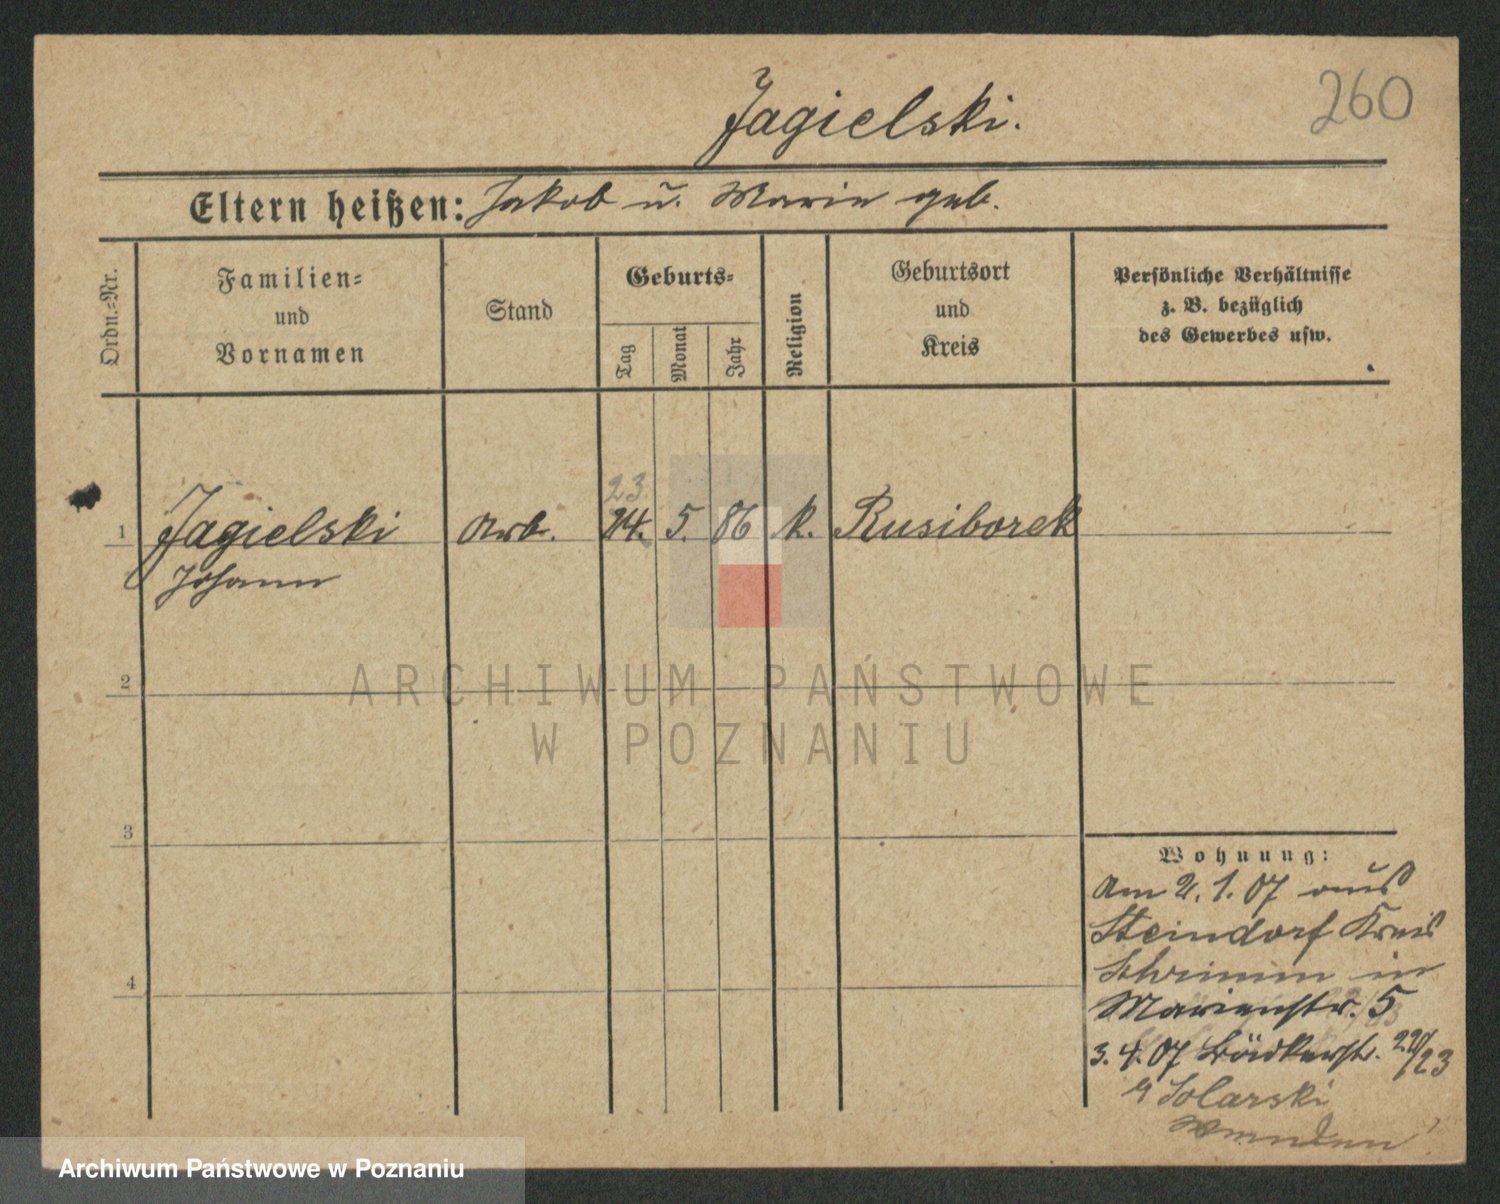 260
Jagielski.
Eltern heißen: Jakob u. Marie geb.
Ordn.-Nr.
Familien-
und
Vornamen
Stand
Geburts-
Tag
Monat
Jahr
Religion
Geburtsort
und
Kreis
Persönliche Verhältnisse
z. B. bezüglich
des Gewerbes usw.
23.
1 Jagielski Arb. 24. 5. 86 k. Rusiborek
Johann
2
ARCHIWUM PAŃSTWOWE
W POZNANIU
3
4
Wohnung:
Am 2. 1. 07 aus
Steindorf Kreis
Schrimm in
Marienstr. 5
3. 4. 07 Bäckerstr. 22/23
Solarski
Archiwum Państwowe w Poznaniu